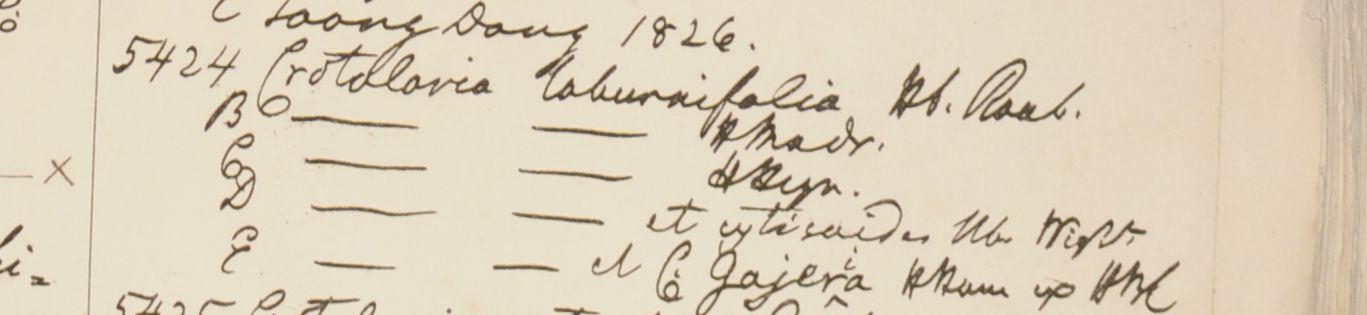 Toong Dong 1826.
5424 Crotalaria laburnifolia Hb. Roxb.
B — — HMadr.
C — —
D — — et cytisoides Hb. Wight
E — — et C Gajera HHam
5425